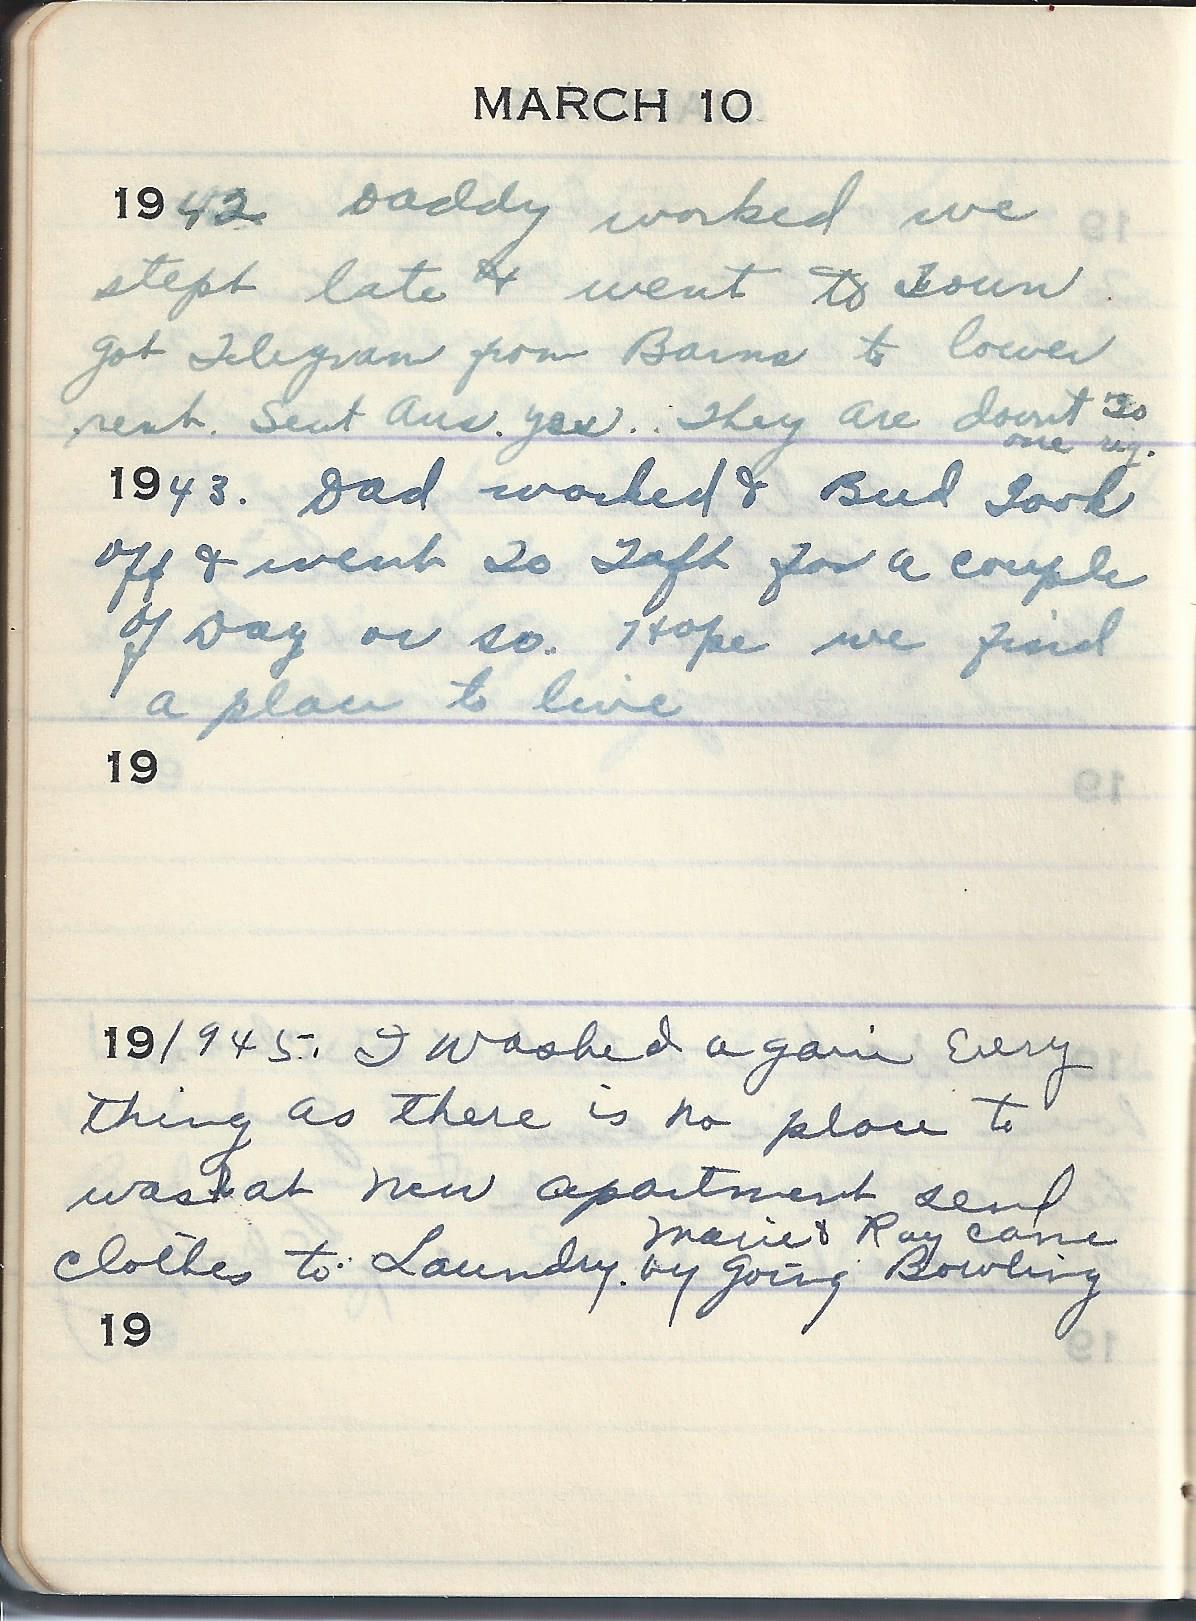 MARCH 10
1942. Daddy worked we
slept late & went to Town
got Telegram from Barns to lower
rent. Sent Ans. yes.. They are down To
one rig.
1943. Dad worked & Bud Took
off & went To Taft for a couple
of Day or so. Hope we find
a place to live
19
19/945. I washed again Every
thing as there is no place to
wash at new apartment send
Marie & Ray came
clothes to Laundry. by going Bowling
19